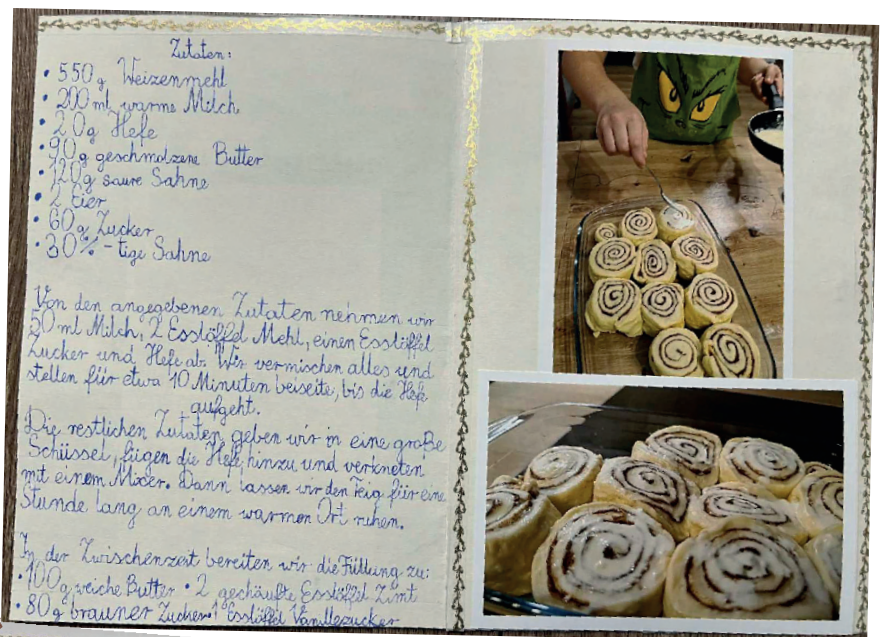 Zutaten:
• 550g Weizenmehl
• 200 ml warme Milch
• 20g Hefe
• 90g geschmolzene Butter
• 120g saure Sahne
• 2 Eier
• 60g Zucker
• 30%-tige Sahne
Von den angegebenen Zutaten nehmen wir
50 ml Milch, 2 Esslöffel Mehl, einen Esslöffel
Zucker und Hefe ab. Wir vermischen alles und
stellen für etwa 10 Minuten beiseite, bis die Hefe
aufgeht.
Die restlichen Zutaten geben wir in eine große
Schüssel, fügen die Hefe hinzu und verkneten
mit einem Mixer. Dann lassen wir den Teig für eine
Stunde lang an einem warmen Ort ruhen.
In der Zwischenzeit bereiten wir die Füllung zu:
• 100g weiche Butter • 2 gehäufte Esslöffel Zimt
• 80g brauner Zucker • 1 Esslöffel Vanillezucker